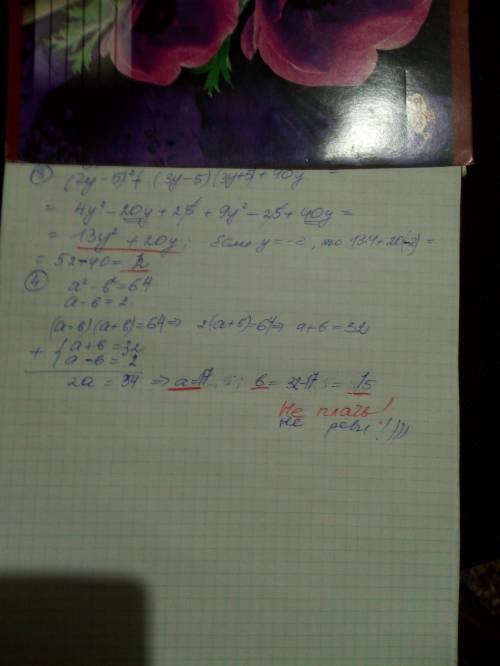 ③ (2y-5)²+ (3y-5)(3y+5)+40y =
= 4y²-20y+25+9y²-25+40y=
= 13y²+20y; Если y=-2, то 13·4+20(-2)=
= 52-40=12
④ a²-в²=64
a-в=2
(a-в)(a+в)=64⇒ 2(a+в)=64⇒ a+в=32
+ { a+в=32
a-в=2
2a = 34 ⇒ a=17; в= 32-17= 15
Не плачь!
не реви!)))